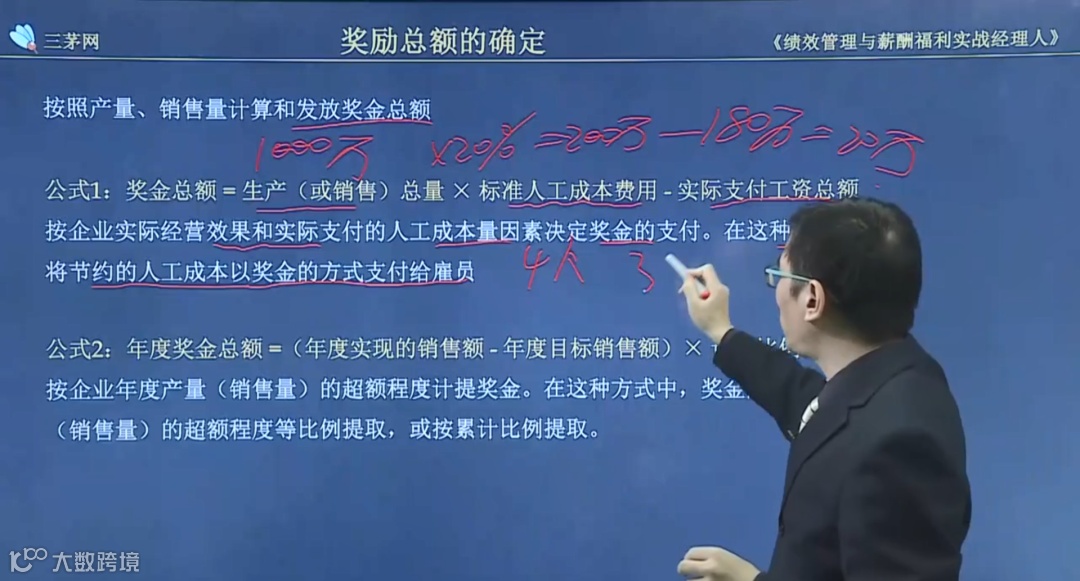 三茅网
奖励总额的确定
《绩效管理与薪酬福利实战经理人》
按照产量、销售量计算和发放奖金总额
1000万 ×20%=200万-180万=20万
公式1：奖金总额 = 生产（或销售）总量 × 标准人工成本费用 - 实际支付工资总额
按企业实际经营效果和实际支付的人工成本量因素决定奖金的支付。在这种
将节约的人工成本以奖金的方式支付给雇员
4人 3
公式2：年度奖金总额 =（年度实现的销售额 - 年度目标销售额）×
按企业年度产量（销售量）的超额程度计提奖金。在这种方式中，奖金
（销售量）的超额程度等比例提取，或按累计比例提取。
大数跨境